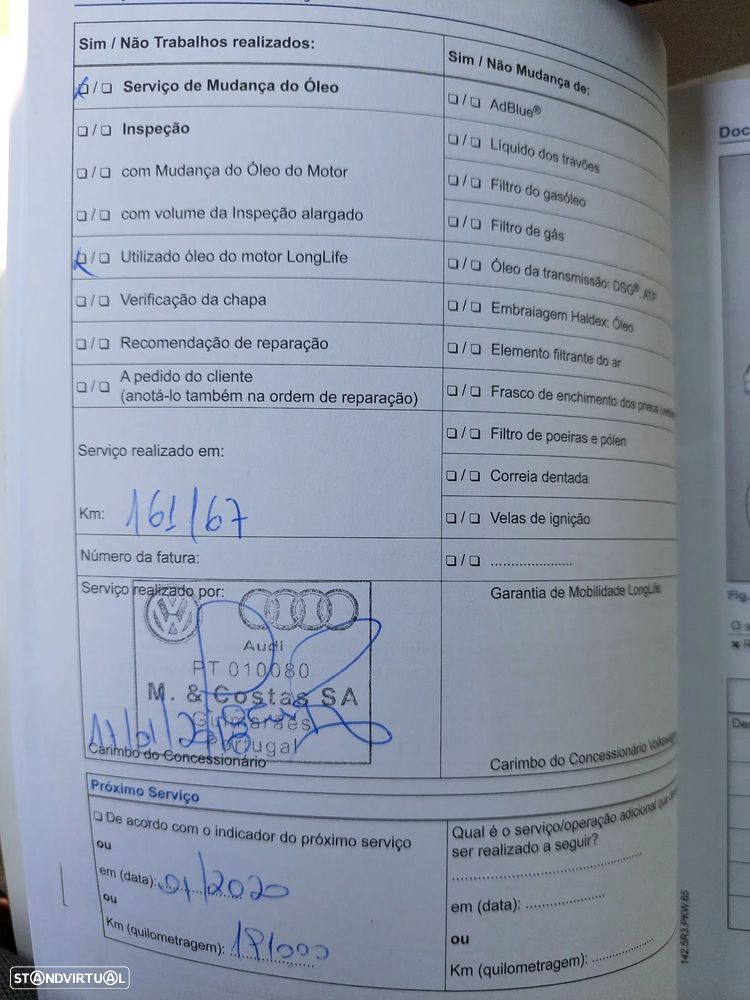 Sim / Não Trabalhos realizados:
❏ / ❏ Serviço de Mudança do Óleo
❏ / ❏ Inspeção
❏ / ❏ com Mudança do Óleo do Motor
❏ / ❏ com volume da Inspeção alargado
❏ / ❏ Utilizado óleo do motor LongLife
❏ / ❏ Verificação da chapa
❏ / ❏ Recomendação de reparação
❏ / ❏ A pedido do cliente
(anotá-lo também na ordem de reparação)
Serviço realizado em:
Km: 161/67
Número da fatura:
Serviço realizado por:
Audi
PT 010080
M. & Costas SA
Guimarães
Portugal
Carimbo do Concessionário
Sim / Não Mudança de:
❏ / ❏ AdBlue®
❏ / ❏ Líquido dos travões
❏ / ❏ Filtro do gasóleo
❏ / ❏ Filtro de gás
❏ / ❏ Óleo da transmissão: DSG®, ATF
❏ / ❏ Embraiagem Haldex: Óleo
❏ / ❏ Elemento filtrante do ar
❏ / ❏ Frasco de enchimento dos pneus
❏ / ❏ Filtro de poeiras e pólen
❏ / ❏ Correia dentada
❏ / ❏ Velas de ignição
❏ / ❏ ....................
Garantia de Mobilidade LongLife:
Carimbo do Concessionário Volkswagen
Próximo Serviço
❏ De acordo com o indicador do próximo serviço
ou
em (data): 01/2020
ou
Km (quilometragem): 191000
Qual é o serviço/operação adicional que
ser realizado a seguir?
em (data): ...................
ou
Km (quilometragem): ...............
142.5R3.PKW.65
Doc
Fig.
O s
STANDVIRTUAL